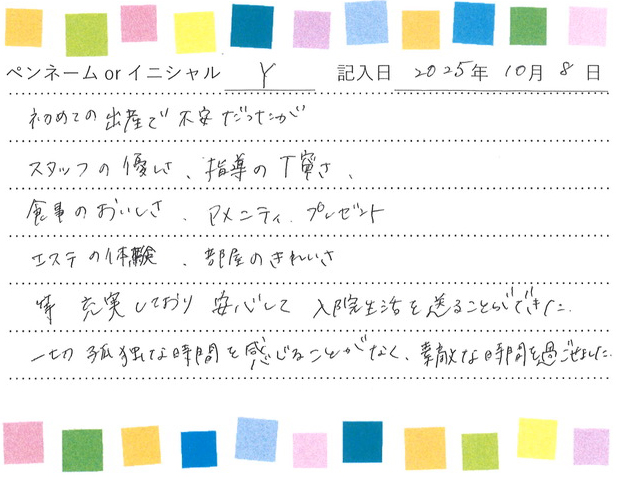 ペンネーム or イニシャル Y 記入日 2025年 10月 8日
初めての出産で不安だったが
スタッフの優しさ、指導の丁寧さ、
食事のおいしさ、アメニティ、プレゼント
エステの体験、部屋のきれいさ
等 充実しており 安心して 入院生活を送ることができた。
一切孤独な時間を感じることがなく、素敵な時間を過ごせました。